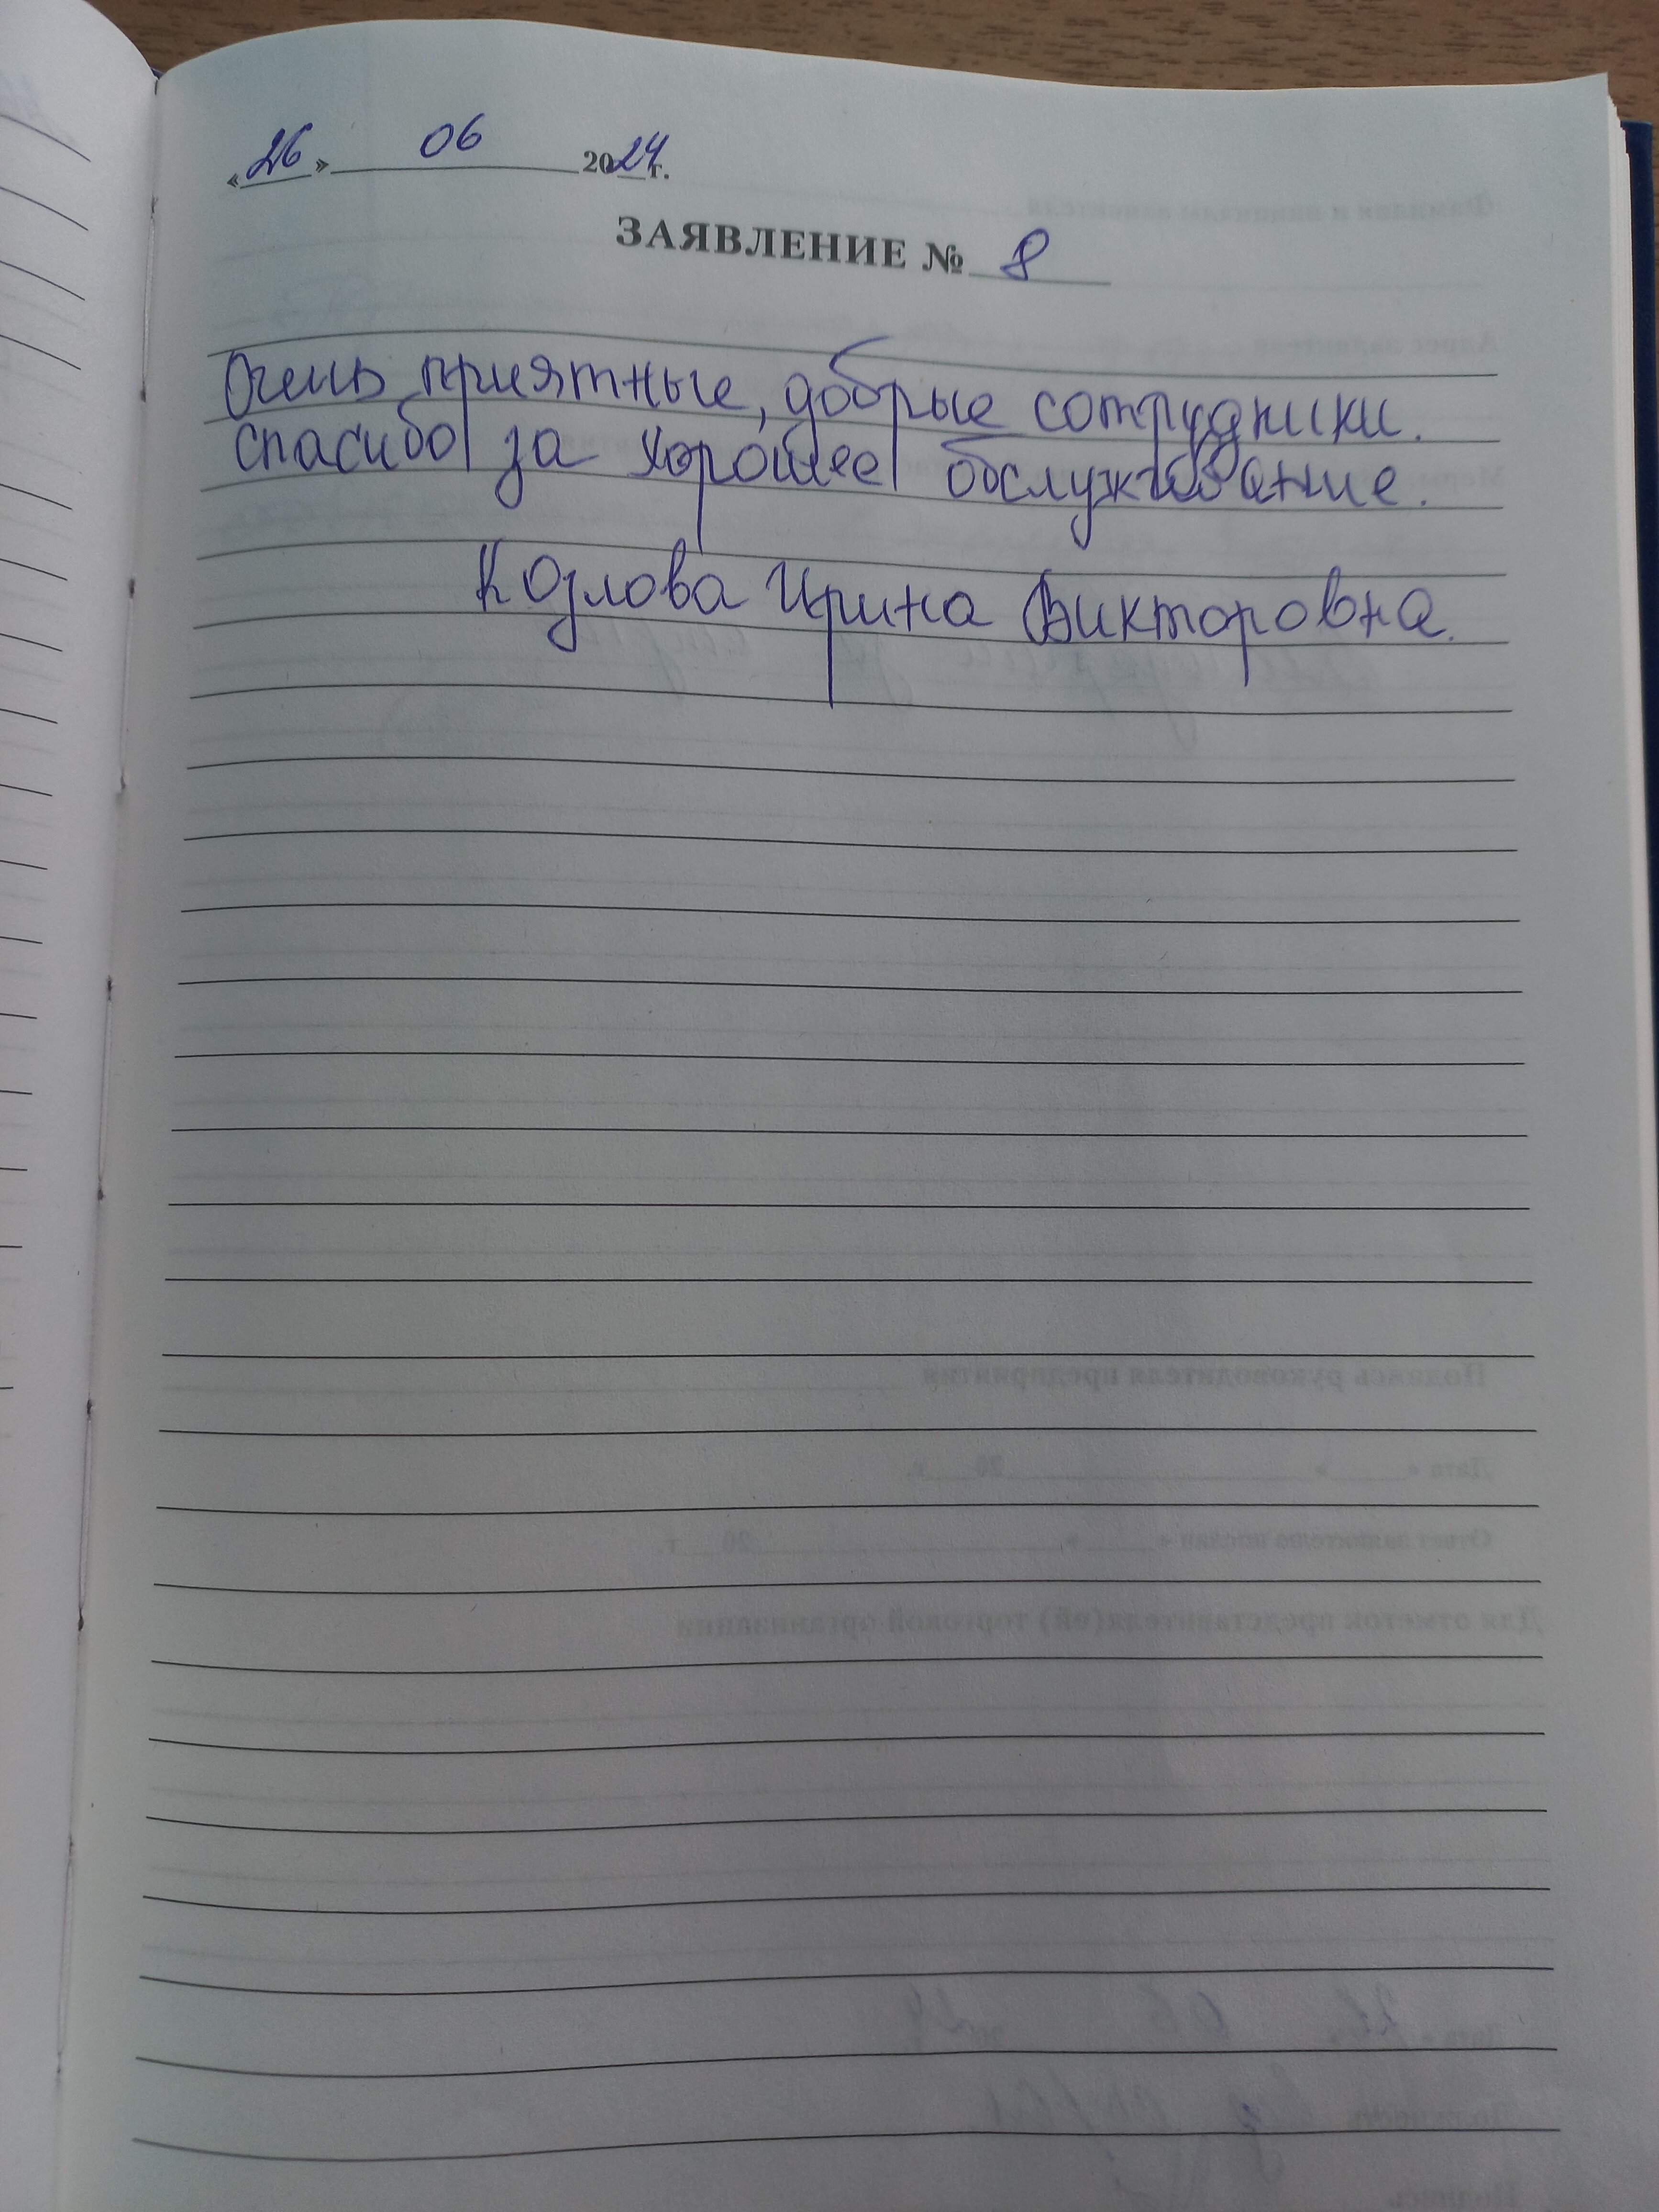 «26» 06 2024г.
ЗАЯВЛЕНИЕ № 8
Очень приятные, добрые сотрудники.
спасибо за хорошее обслуживание.
Козлова Ирина Викторовна.